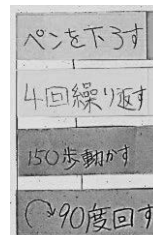 ペンを下ろす
4回繰り返す
150歩動かす
90度回す